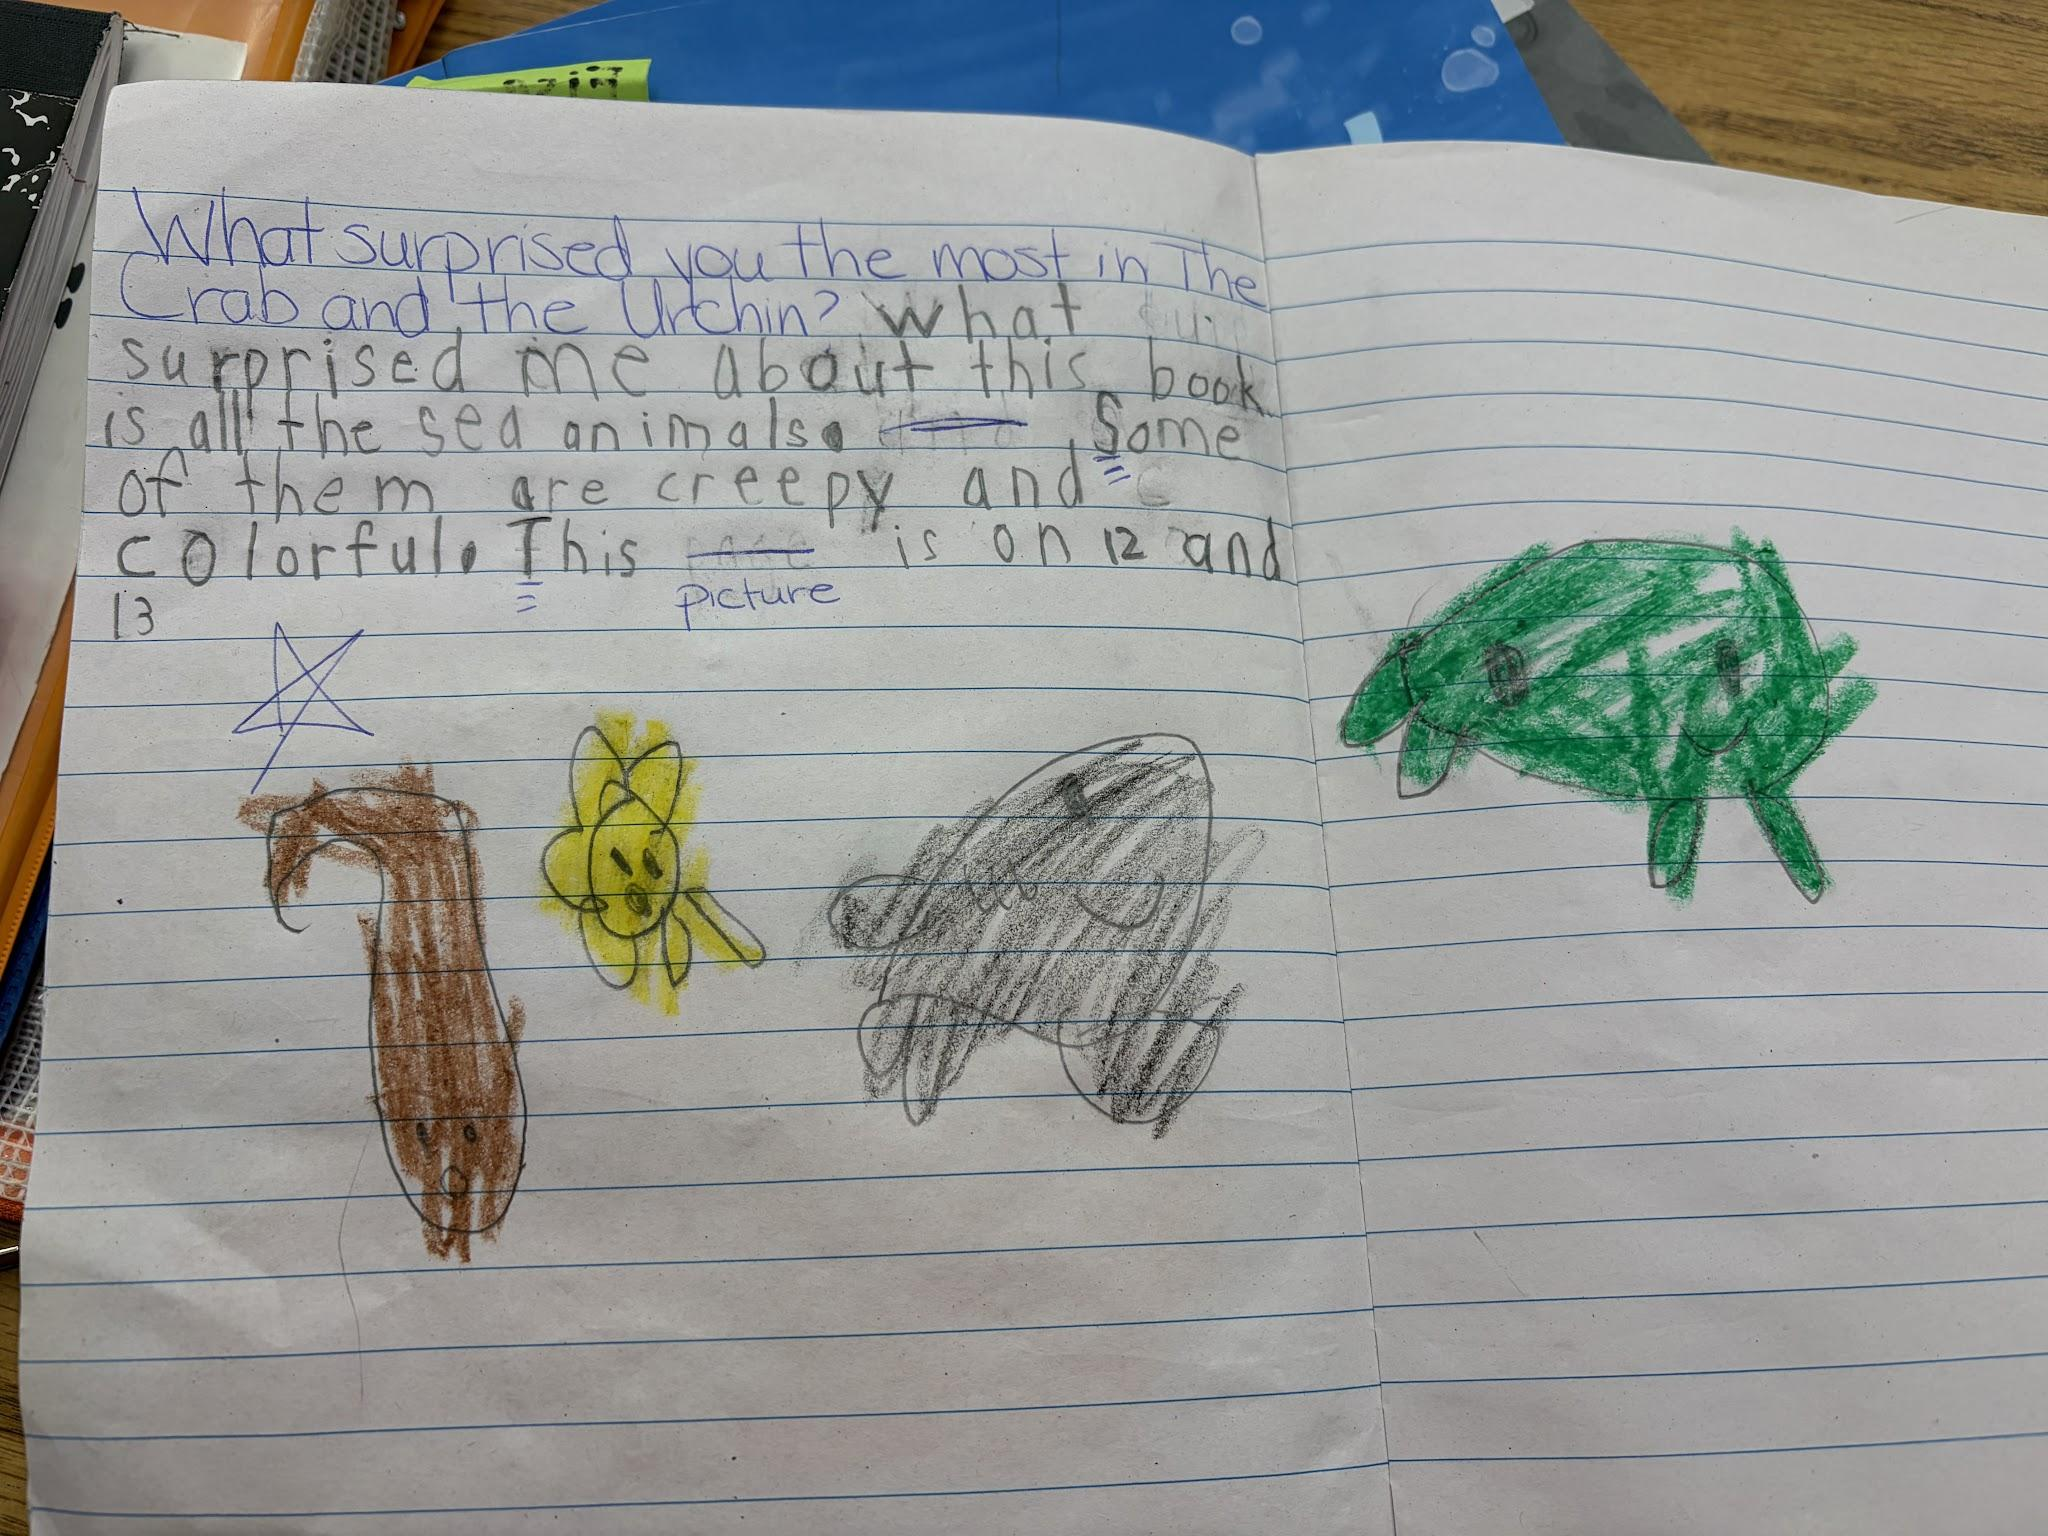 What surprised you the most in The
Crab and the Urchin? What
surprised me about this book
is all the sea animals. Some
of them are creepy and c
colorful. This is on 12 and
picture
13